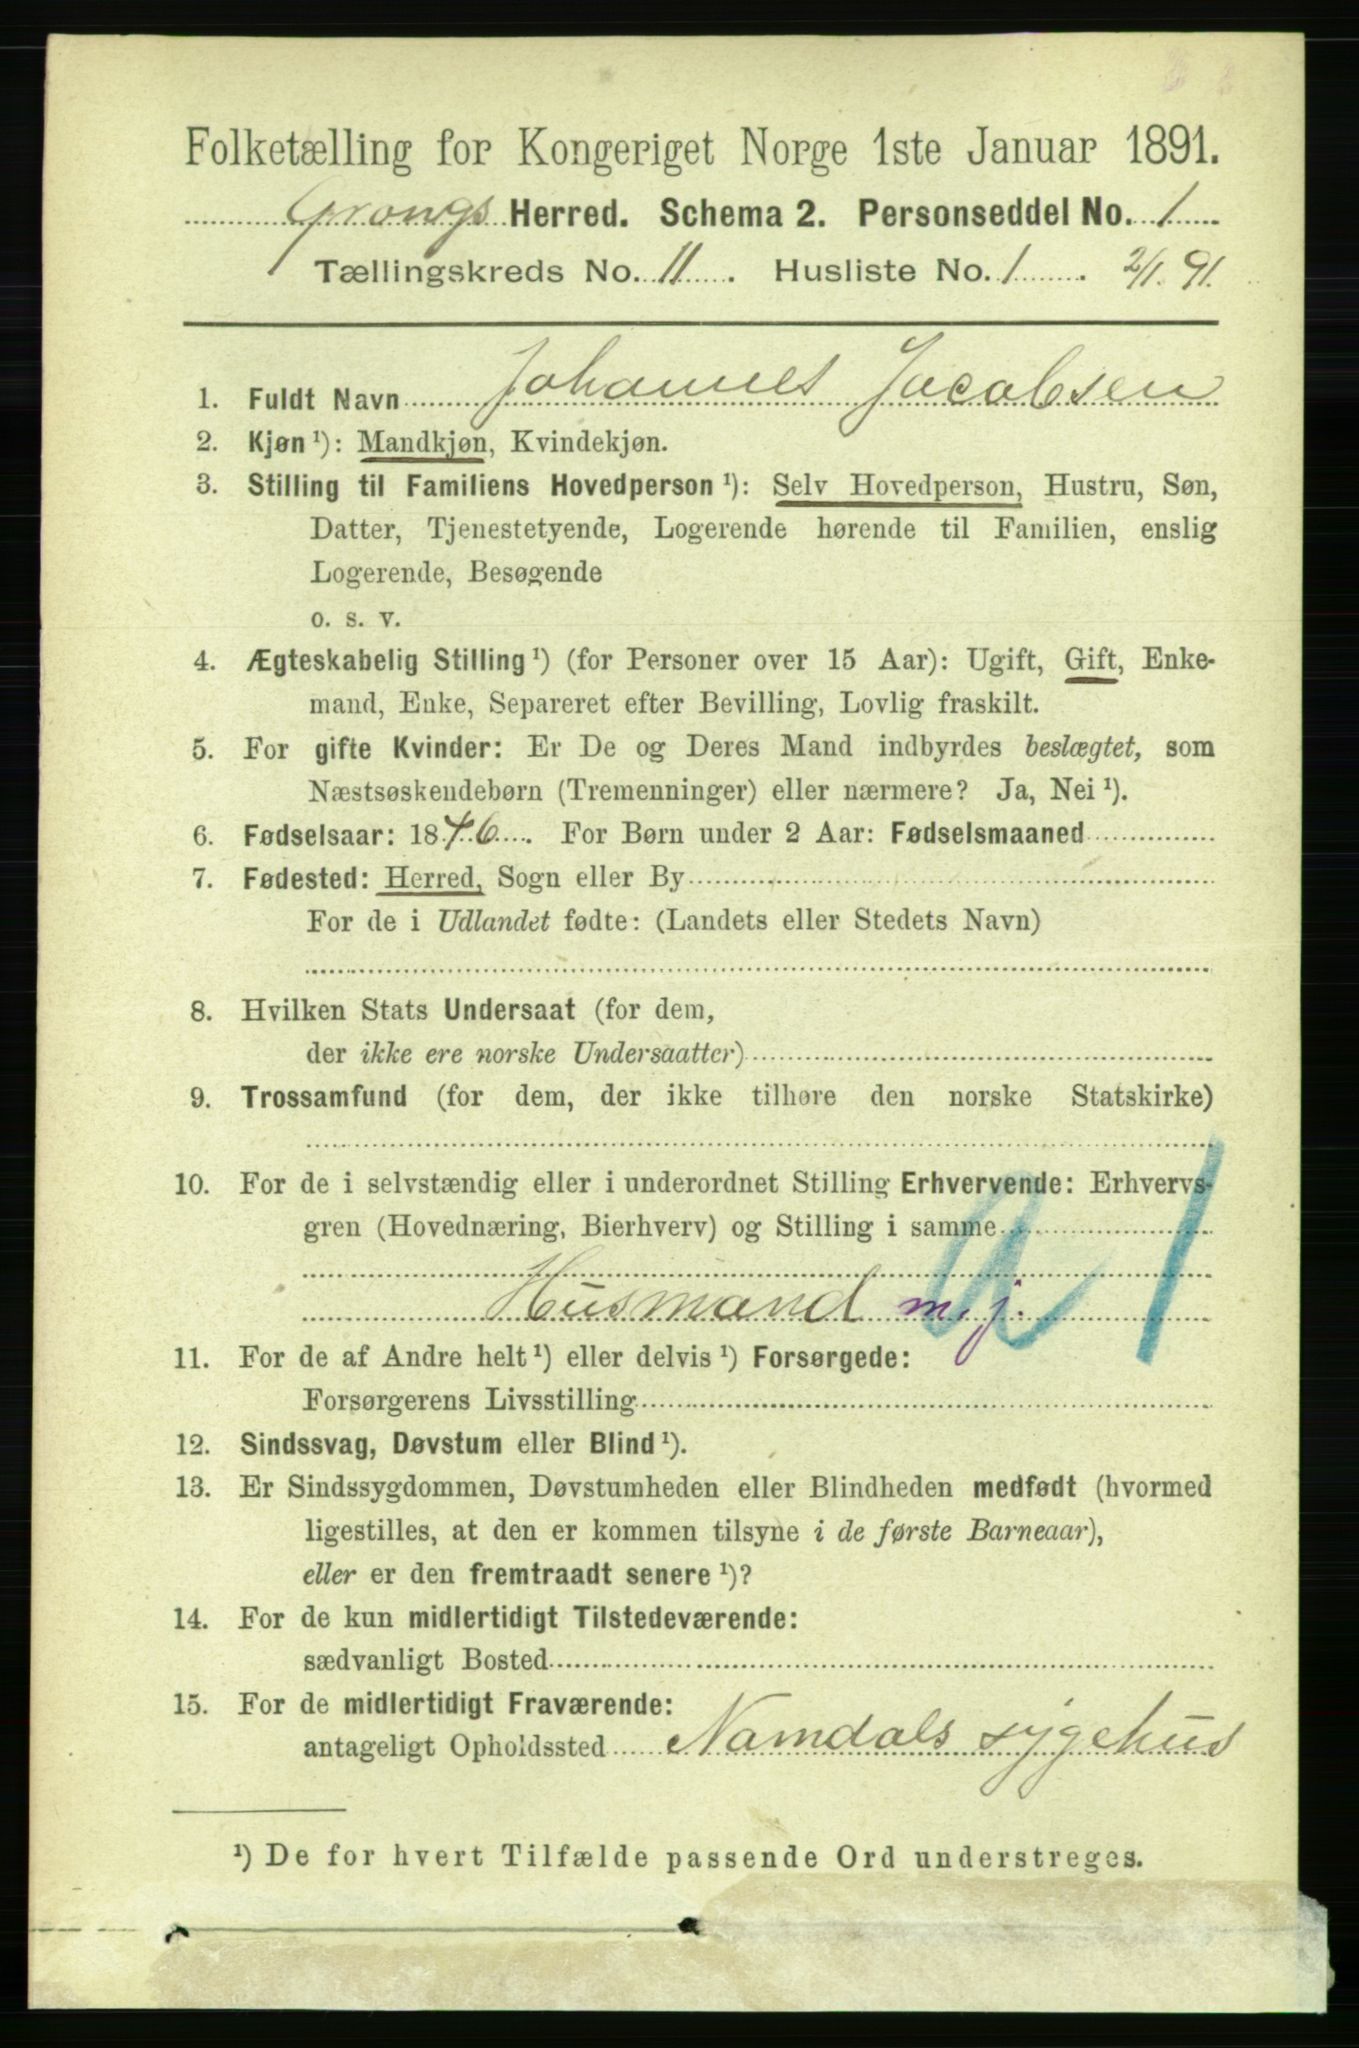 Folketælling for Kongeriget Norge 1ste Januar 1891.
Grongs Herred. Schema 2. Personseddel No. 1
Tællingskreds No. 11. Husliste No. 1. 2/1. 91.
1. Fuldt Navn Johannes Jacobsen
2. Kjøn ¹): Mandkjøn, Kvindekjøn.
3. Stilling til Familiens Hovedperson ¹): Selv Hovedperson, Hustru, Søn,
Datter, Tjenestetyende, Logerende hørende til Familien, enslig
Logerende, Besøgende
o. s. v.
4. Ægteskabelig Stilling ¹) (for Personer over 15 Aar): Ugift, Gift, Enke-
mand, Enke, Separeret efter Bevilling, Lovlig fraskilt.
5. For gifte Kvinder: Er De og Deres Mand indbyrdes beslægtet, som
Næstsøskendebørn (Tremenninger) eller nærmere? Ja, Nei ¹).
6. Fødselsaar: 1846. For Børn under 2 Aar: Fødselsmaaned
7. Fødested: Herred, Sogn eller By
For de i Udlandet fødte: (Landets eller Stedets Navn)
8. Hvilken Stats Undersaat (for dem,
der ikke ere norske Undersaatter)
9. Trossamfund (for dem, der ikke tilhøre den norske Statskirke)
10. For de i selvstændig eller i underordnet Stilling Erhvervende: Erhvervs-
gren (Hovednæring, Bierhverv) og Stilling i samme
Husmand m. j. a 1
11. For de af Andre helt ¹) eller delvis ¹) Forsørgede:
Forsørgerens Livsstilling
12. Sindssvag, Døvstum eller Blind ¹).
13. Er Sindssygdommen, Døvstumheden eller Blindheden medfødt (hvormed
ligestilles, at den er kommen tilsyne i de første Barneaar),
eller er den fremtraadt senere ¹)?
14. For de kun midlertidigt Tilstedeværende:
sædvanligt Bosted
15. For de midlertidigt Fraværende:
antageligt Opholdssted Namdals sygehus
¹) De for hvert Tilfælde passende Ord understreges.